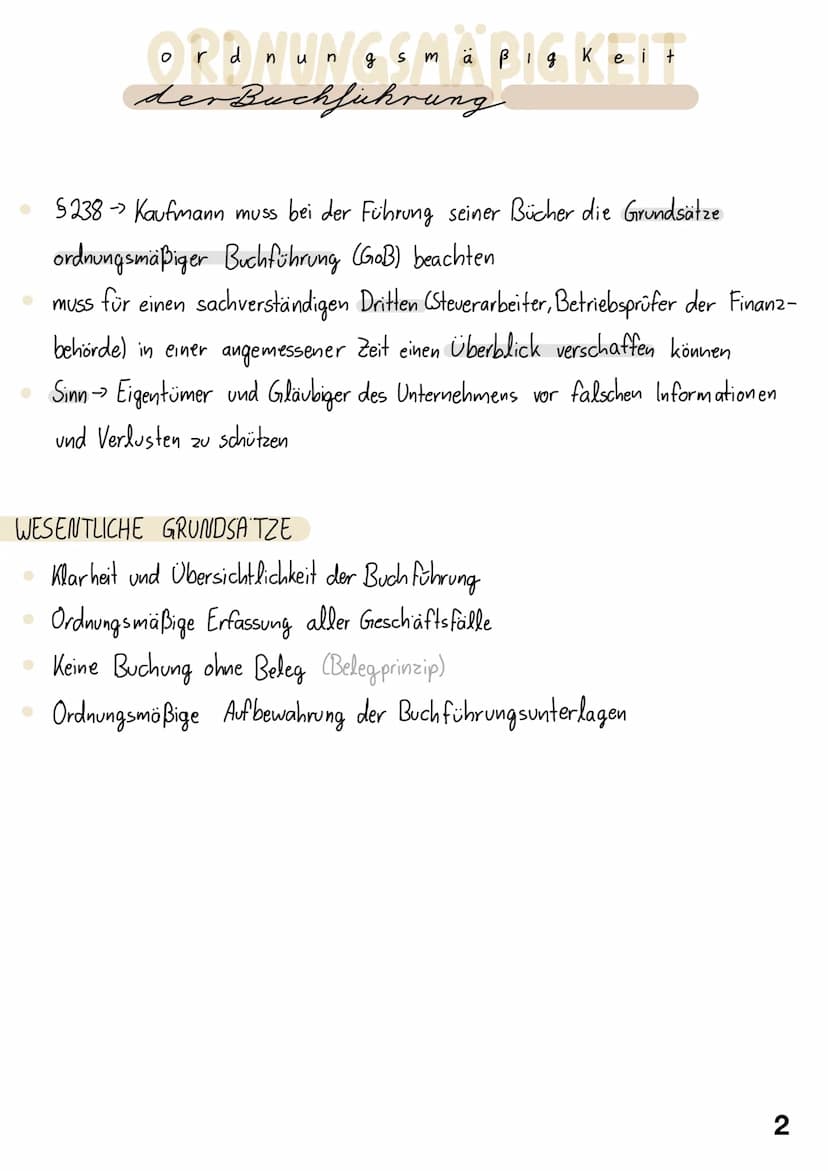 ORDNUNGSMÄßIGKEIT
ordnungsmäßigkeit
der Buchführung
§238 → Kaufmann muss bei der Führung seiner Bücher die Grundsätze
ordnungsmäßiger Buchführung (GoB) beachten
muss für einen sachverständigen Dritten (Steuerarbeiter, Betriebsprüfer der Finanz-
behörde) in einer angemessener Zeit einen Überblick verschaffen können
Sinn → Eigentümer und Gläubiger des Unternehmens vor falschen Informationen
und Verlusten zu schützen
WESENTLICHE GRUNDSÄTZE
Klarheit und Übersichtlichkeit der Buchführung
Ordnungsmäßige Erfassung aller Geschäftsfälle
Keine Buchung ohne Beleg (Belegprinzip)
Ordnungsmäßige Aufbewahrung der Buchführungsunterlagen
2